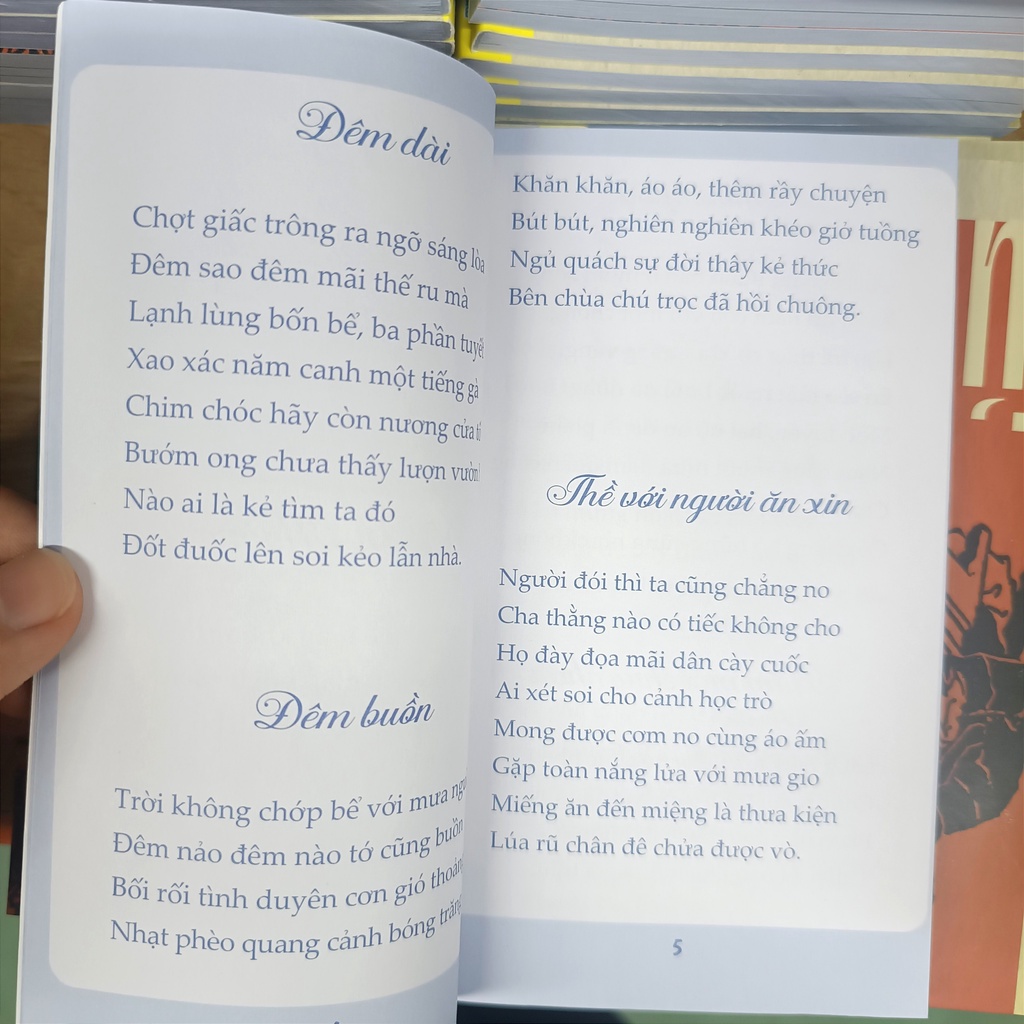 Đêm dài
Chợt giấc trông ra ngỡ sáng lòa
Đêm sao đêm mãi thế ru mà
Lạnh lùng bốn bể, ba phần
Xao xác năm canh một tiếng gà
Chim chóc hãy còn nương cửa
Bướm ong chưa thấy lượn vườn
Nào ai là kẻ tìm ta đó
Đốt đuốc lên soi kẻo lẫn nhà.
Đêm buồn
Trời không chớp bể với mưa
Đêm nảo đêm nào tớ cũng buồn
Bối rối tình duyên cơn gió
Nhạt phèo quang cảnh bóng trăng
Khăn khăn, áo áo, thêm rầy chuyện
Bút bút, nghiên nghiên khéo giở tuồng
Ngủ quách sự đời thây kẻ thức
Bên chùa chú trọc đã hồi chuông.
Thề với người ăn xin
Người đói thì ta cũng chẳng no
Cha thằng nào có tiếc không cho
Họ đày đọa mãi dân cày cuốc
Ai xét soi cho cảnh học trò
Mong được cơm no cùng áo ấm
Gặp toàn nắng lửa với mưa gio
Miếng ăn đến miệng là thưa kiện
Lúa rũ chân đê chửa được vò.
5